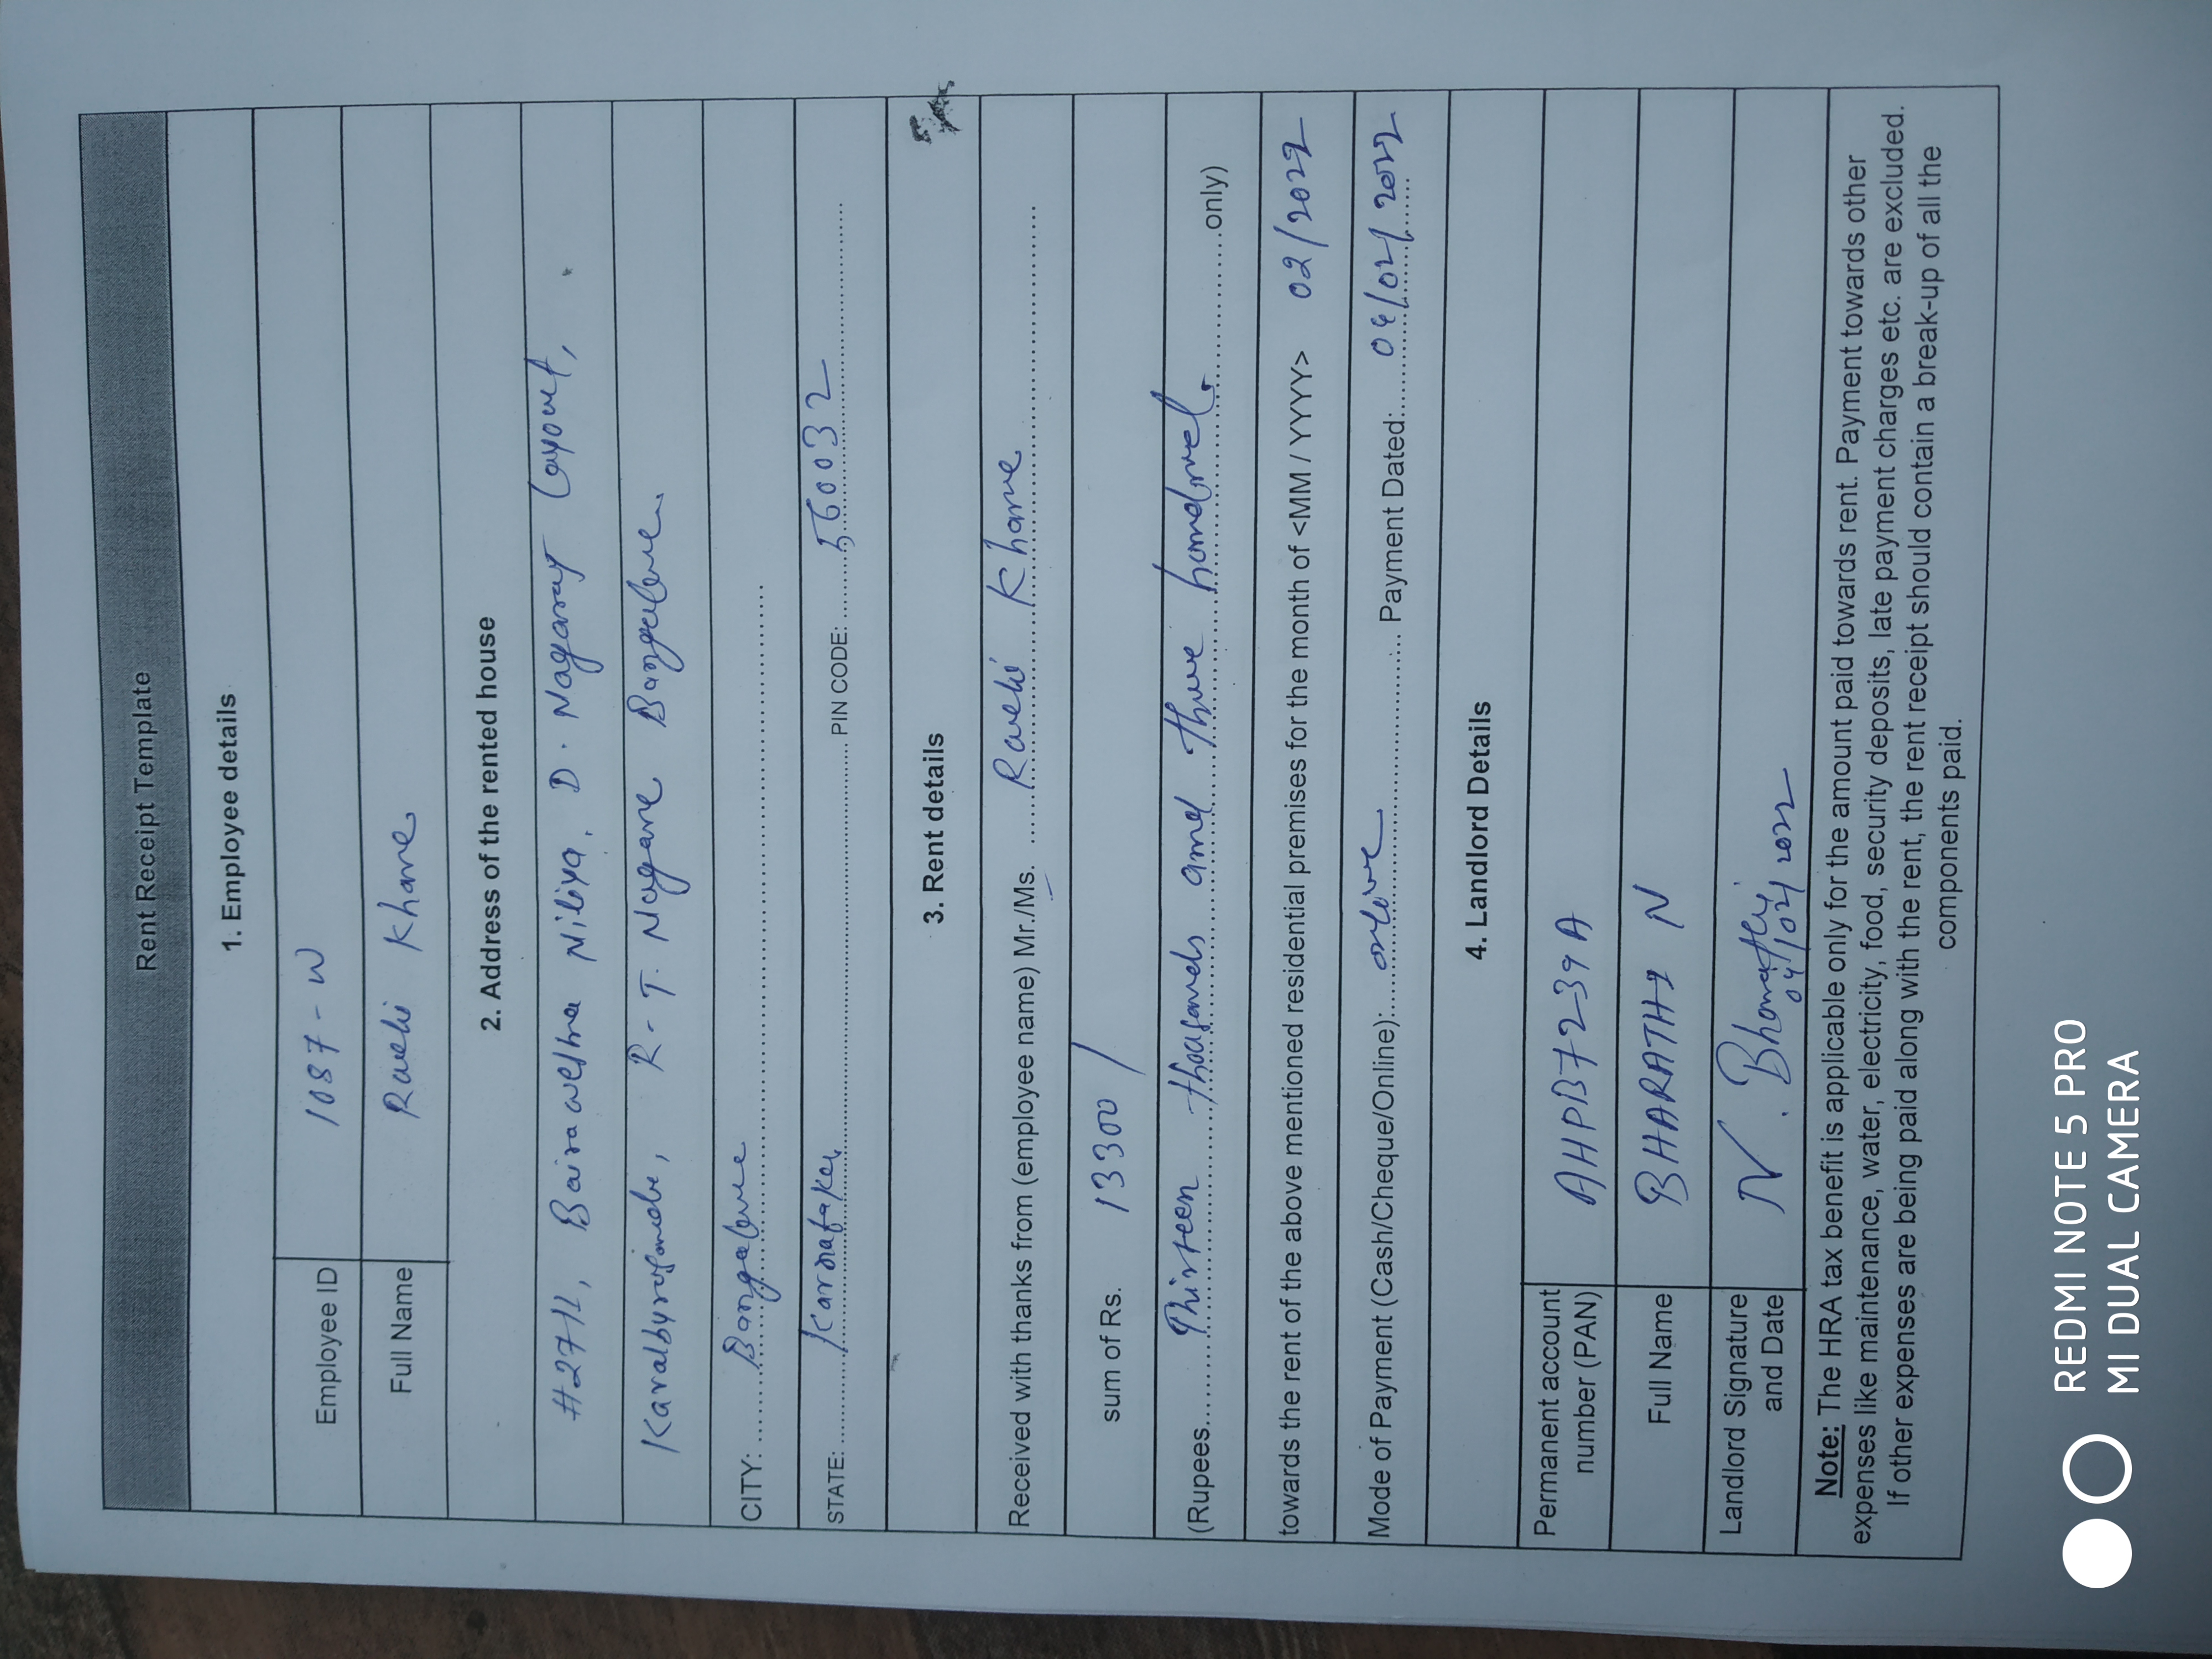 Rent Receipt Template
1. Employee details
Employee ID 1087-W
Full Name Khare
2. Address of the rented house
Niliya, D. Nagaraj Layout,
R. T. Nagare Bangalore
CITY: Bangalore
STATE: Karnataka PIN CODE: 560032
3. Rent details
Received with thanks from (employee name) Mr./Ms. Khare
sum of Rs. 13300/
(Rupees Thirteen thousands and three hundred only)
towards the rent of the above mentioned residential premises for the month of <MM / YYYY> 02/2022
Mode of Payment (Cash/Cheque/Online): online Payment Dated: 04/02/2022
4. Landlord Details
Permanent account
number (PAN) AHPB7239A
Full Name BHARATHI N
Landlord Signature
and Date N. Bharathi
04/02/2022
Note: The HRA tax benefit is applicable only for the amount paid towards rent. Payment towards other
expenses like maintenance, water, electricity, food, security deposits, late payment charges etc. are excluded.
If other expenses are being paid along with the rent, the rent receipt should contain a break-up of all the
components paid.
REDMI NOTE 5 PRO
MI DUAL CAMERA